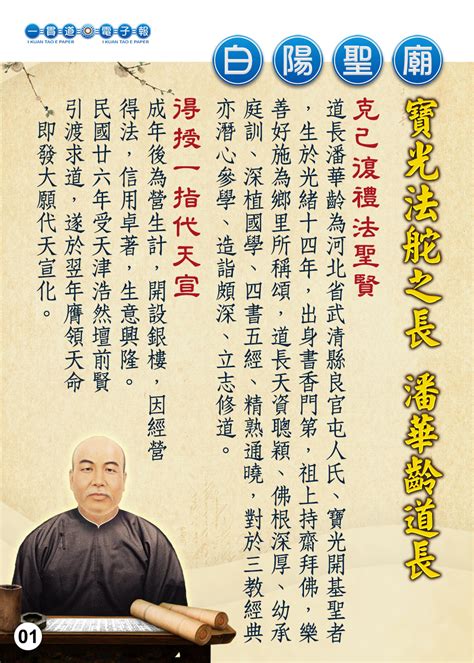 一貫道電子報
I KUAN TAO E PAPER I KUAN TAO E PAPER
白陽聖廟
寶光法舵之長 潘華齡道長
克己復禮法聖賢
道長潘華齡為河北省武清縣良官屯人氏、寶光開基聖者
，生於光緒十四年，出身書香門第，祖上持齋拜佛，樂
善好施為鄉里所稱頌，道長天資聰穎、佛根深厚、幼承
庭訓、深植國學、四書五經、精熟通曉，對於三教經典
亦潛心參學、造詣頗深、立志修道。
得授一指代天宣
成年後為營生計，開設銀樓，因經營
得法，信用卓著，生意興隆。
民國廿六年受天津浩然壇前賢
引渡求道，遂於翌年膺領天命
，即發大願代天宣化。
01